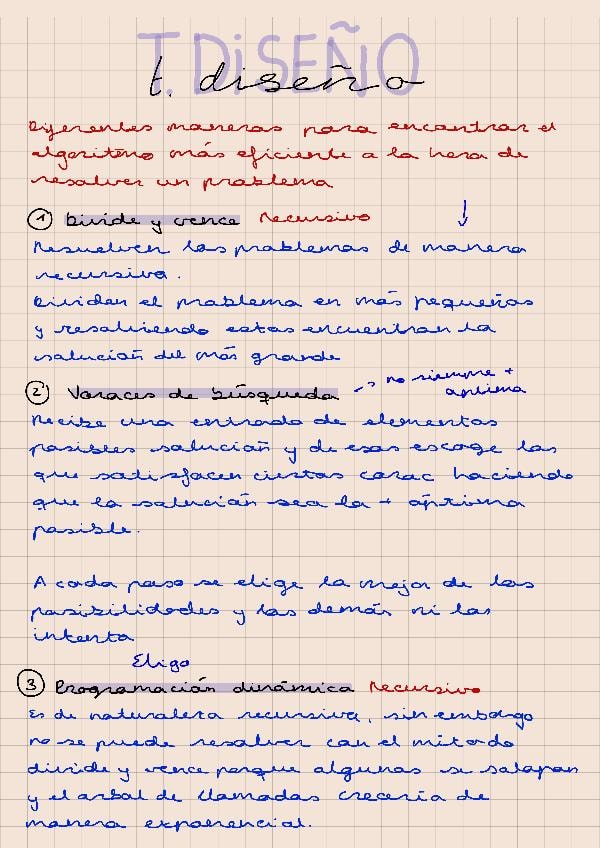 T. DISEÑO
t. diseño
Diferentes maneras para encontrar el
algoritmo más eficiente a la hora de
resolver un problema
1 Divide y vence Recursivo
Resuelven los problemas de manera
recursiva.
Dividen el problema en más pequeños
y resolviendo estos encuentran la
solución del más grande
2 Voraces de búsqueda -> no siempre +
óptima
Recibe una entrada de elementos
posibles solución y de esos escoge los
que satisfacen ciertas carac haciendo
que la solución sea la + óptima
posible.
A cada paso se elige la mejor de las
posibilidades y las demás ni las
intenta
Eligo
3 Programación dinámica Recursivo
Es de naturaleza recursiva, sin embargo
no se puede resolver con el método
divide y vence porque algunas se solapan
y el arbol de llamadas crecería de
manera exponencial.